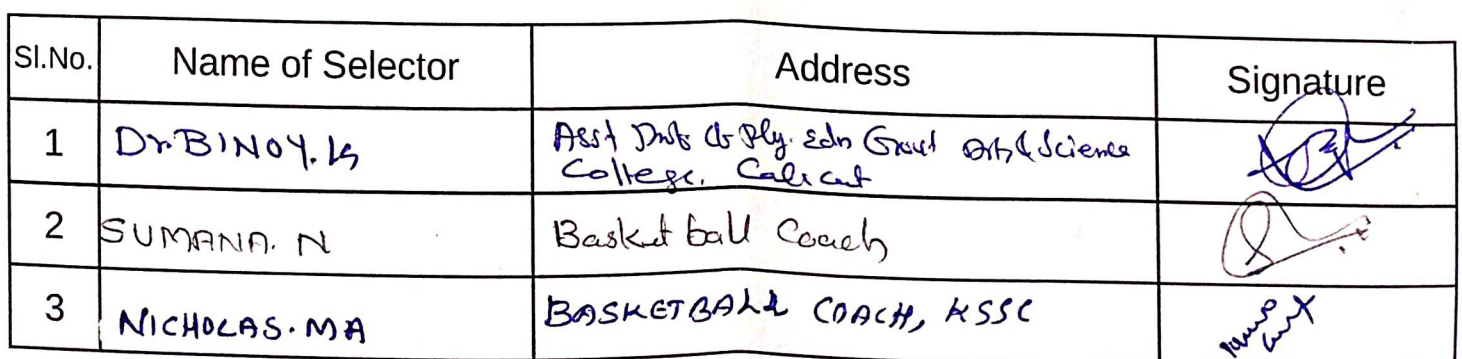 Sl.No. Name of Selector Address Signature
1 Dr. BINOY. K Asst Prof of Phy. Edn Govt Arts & Science
College. Calicut
2 SUMANA. N Basket ball Coach
3 NICHOLAS. MA BASKETBALL COACH, KSSC